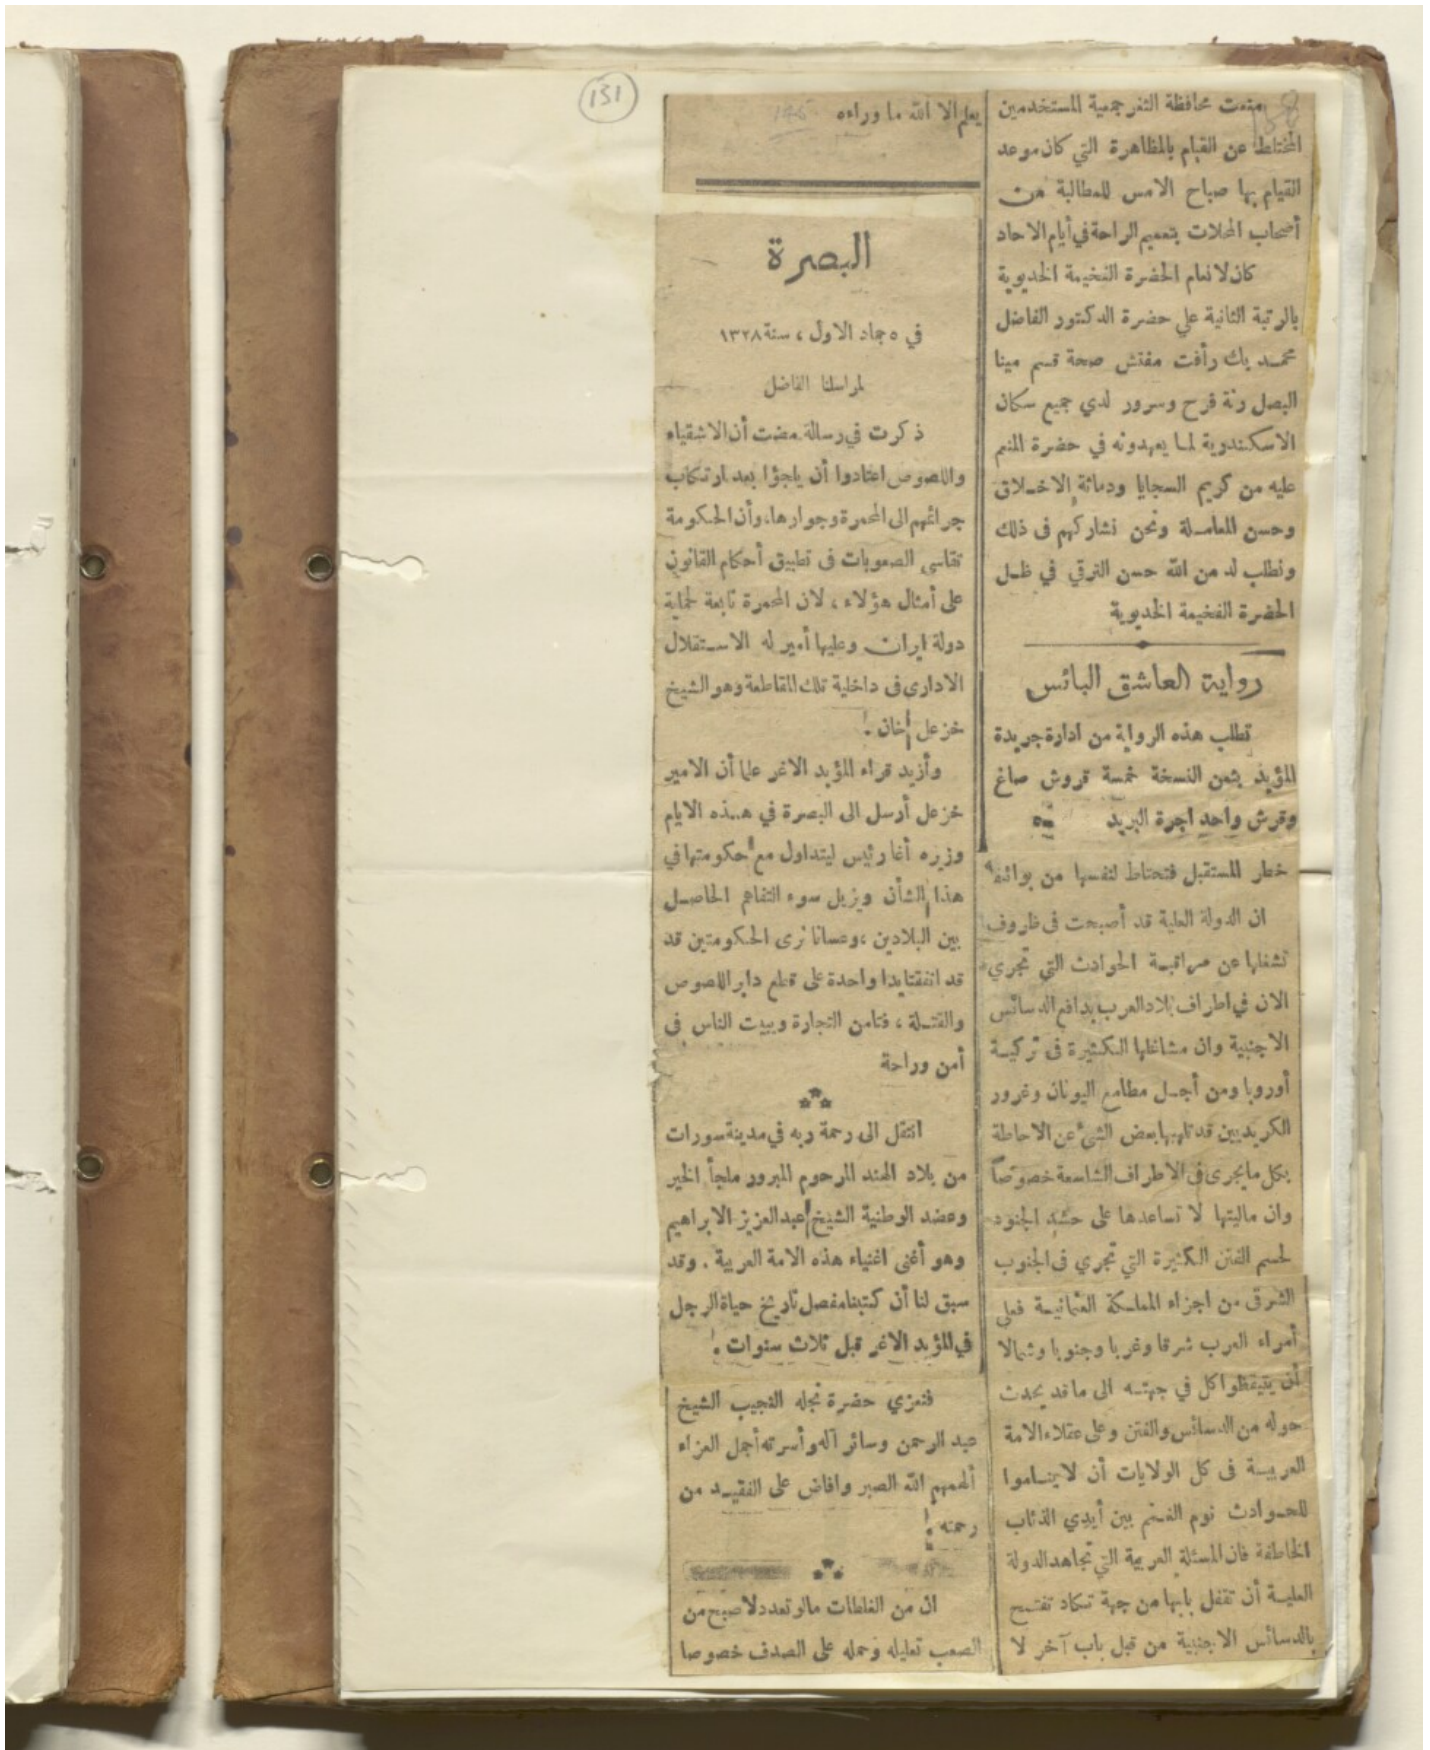 131
منعت محافظة الثغر جمعية المستخدمين
المختلط عن القيام بالمظاهرة التي كان موعد
القيام بها صباح الامس للمطالبة من
أصحاب المحلات بتعميم الراحة في أيام الاحاد
كان لانعام الحضرة الفخيمة الخديوية
بالرتبة الثانية علي حضرة الدكتور الفاضل
محمد بك رأفت مفتش صحة قسم مينا
البصل رنة فرح وسرور لدي جميع سكان
الاسكندرية لما يعهدونه في حضرة المنعم
عليه من كريم السجايا ودماثة الاخلاق
وحسن المعاملة ونحن نشاركهم فى ذلك
ونطلب له من الله حسن الترقي في ظل
الحضرة الفخيمة الخديوية
رواية العاشق البائس
تطلب هذه الرواية من ادارة جريدة
المؤيد بثمن النسخة خمسة قروش صاغ
وقرش واحد اجرة البريد
خطر المستقبل فتحتاط لنفسها من بوائقه
ان الدولة العلية قد أصبحت فى ظروف
تشغلها عن مراقبة الحوادث التي تجري
الان في اطراف بلاد العرب بدافع الدسائس
الاجنبية وان مشاغلها الكثيرة فى تركية
أوروبا ومن أجل مطامع اليونان وغرور
الكريديين قد تلهيها بعض الشئ عن الاحاطة
بكل مايجرى فى الاطراف الشاسعة خصوصاً
وان ماليتها لا تساعدها على حشد الجنود
لحسم الفتن الكثيرة التي تجري فى الجنوب
الشرقى من اجزاء المملكة العثمانية فعلى
أمراء العرب شرقا وغربا وجنوبا وشمالا
أن يتيقظوا كل في جهته الى ما قد يحدث
حوله من الدسائس والفتن وعلى عقلاء الامة
العربية فى كل الولايات أن لا يناموا
للحوادث نوم الغنم بين أيدي الذئاب
الخاطفة فان المسئلة العربية التي تجاهد الدولة
العلية أن تقفل بابها من جهة تكاد تفتح
بالدسائس الاجنبية من قبل باب آخر لا
يعلم الا الله ما وراءه
البصرة
في ٥ جماد الاول ، سنة ١٣٢٨
لمراسلنا الفاضل
ذكرت في رسالة مضت أن الاشقياء
واللصوص اعتادوا أن يلجؤا بعد ارتكاب
جرائمهم الى المحمرة وجوارها، وأن الحكومة
تقاسي الصعوبات فى تطبيق أحكام القانون
على أمثال هؤلاء ، لان المحمرة تابعة لحماية
دولة ايران وعليها أمير له الاستقلال
الادارى فى داخلية تلك المقاطعة وهو الشيخ
خزعل خان !
وأزيد قراء المؤيد الاغر علما أن الامير
خزعل أرسل الى البصرة في هذه الايام
وزيره أغا رئيس ليتداول مع حكومتها في
هذا الشأن ويزيل سوء التفاهم الحاصل
بين البلادين ، وعسانا نرى الحكومتين قد
قد اتفقتا يدا واحدة على قطع دابر اللصوص
والقتلة ، فتامن التجارة ويبيت الناس فى
أمن وراحة
انتقل الى رحمة ربه في مدينة سورات
من بلاد الهند المرحوم المبرور ملجأ الخير
وعضد الوطنية الشيخ عبدالعزيز الابراهيم
وهو أغنى اغنياء هذه الامة العربية . وقد
سبق لنا أن كتبنا مفصل تاريخ حياة الرجل
في المؤيد الاغر قبل ثلاث سنوات !
فنعزي حضرة نجله النجيب الشيخ
عبد الرحمن وسائر آله وأسرته أجمل العزاء
ألهمهم الله الصبر وافاض على الفقيد من
رحمته !
ان من الغلطات مالو تعدد لاصبح من
الصعب تعليله وحمله على الصدف خصوصا